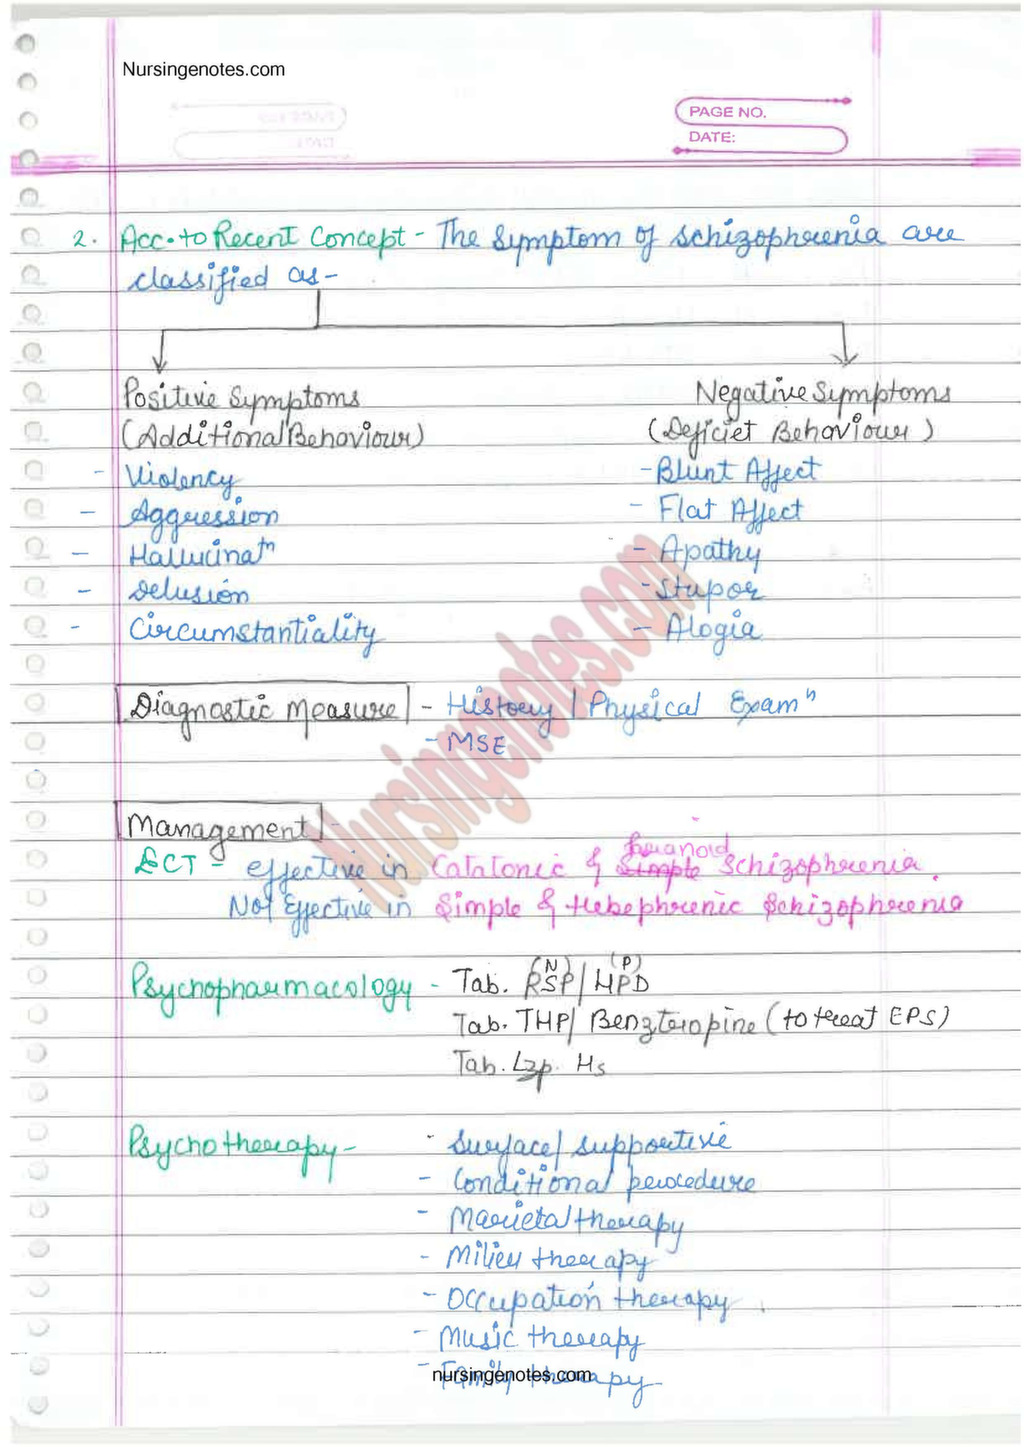 Nursingenotes.com
PAGE NO.
DATE:
2. Acc. to Recent Concept - The symptom of schizophrenia are
classified as -
Positive Symptoms
Negative Symptoms
(Additional Behaviour)
(Deficiet Behaviour)
- Violency
- Blunt Affect
- Aggression
- Flat Affect
- Hallucinatn
- Apathy
- Delusion
- Stupor
- Circumstantiality
- Alogia
Diagnostic Measure - History / Physical Examn
- MSE
Management -
paranoid
ECT - effective in Catatonic & Simple Schizophrenia.
Not Effective in Simple & Hebephrenic Schizophrenia
(N) (P)
Psychopharmacology - Tab. RSP / HPD
Tab. THP / Benzteropine (to treat EPS)
Tab. Lzp. Hs
Psychotherapy - - Surface / supportive
- Conditional procedure
- Marietal therapy
- Milieu therapy
- Occupation therapy
- Music therapy
- Family therapy
nursingenotes.com
Nursingenotes.com